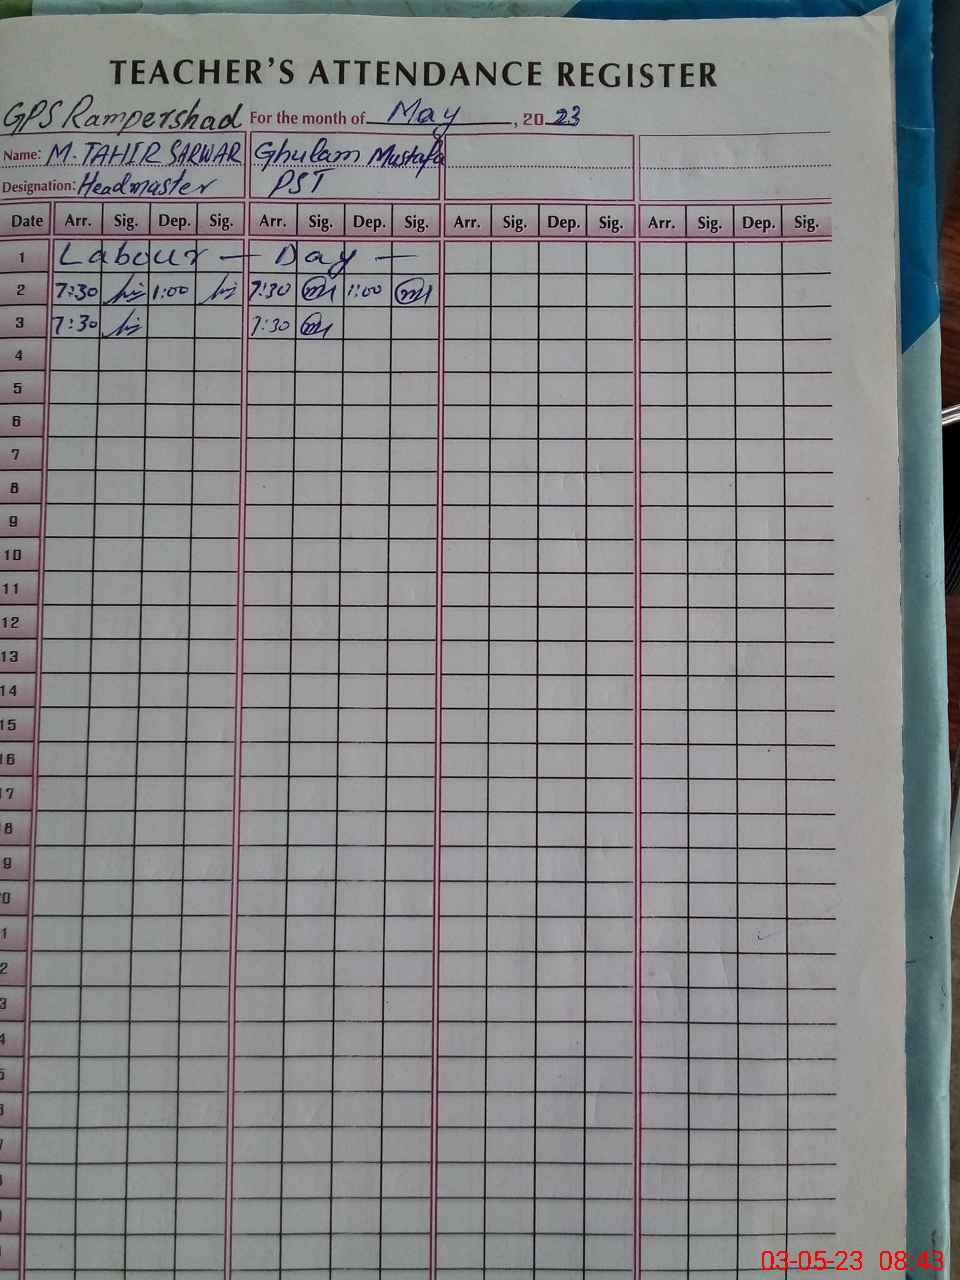 TEACHER'S ATTENDANCE REGISTER
GPS Rampershad For the month of May, 2023
Name: M. TAHIR SARWAR Ghulam Mustafa
Designation: Headmaster PST
Date Arr. Sig. Dep. Sig. Arr. Sig. Dep. Sig. Arr. Sig. Dep. Sig. Arr. Sig. Dep. Sig.
1 Labour — Day —
2 7:30 1:00 7:30 1:00
3 7:30 7:30
4
5
6
7
8
9
10
11
12
13
14
15
16
17
8
9
0
1
2
3
4
5
03-05-23 08:43